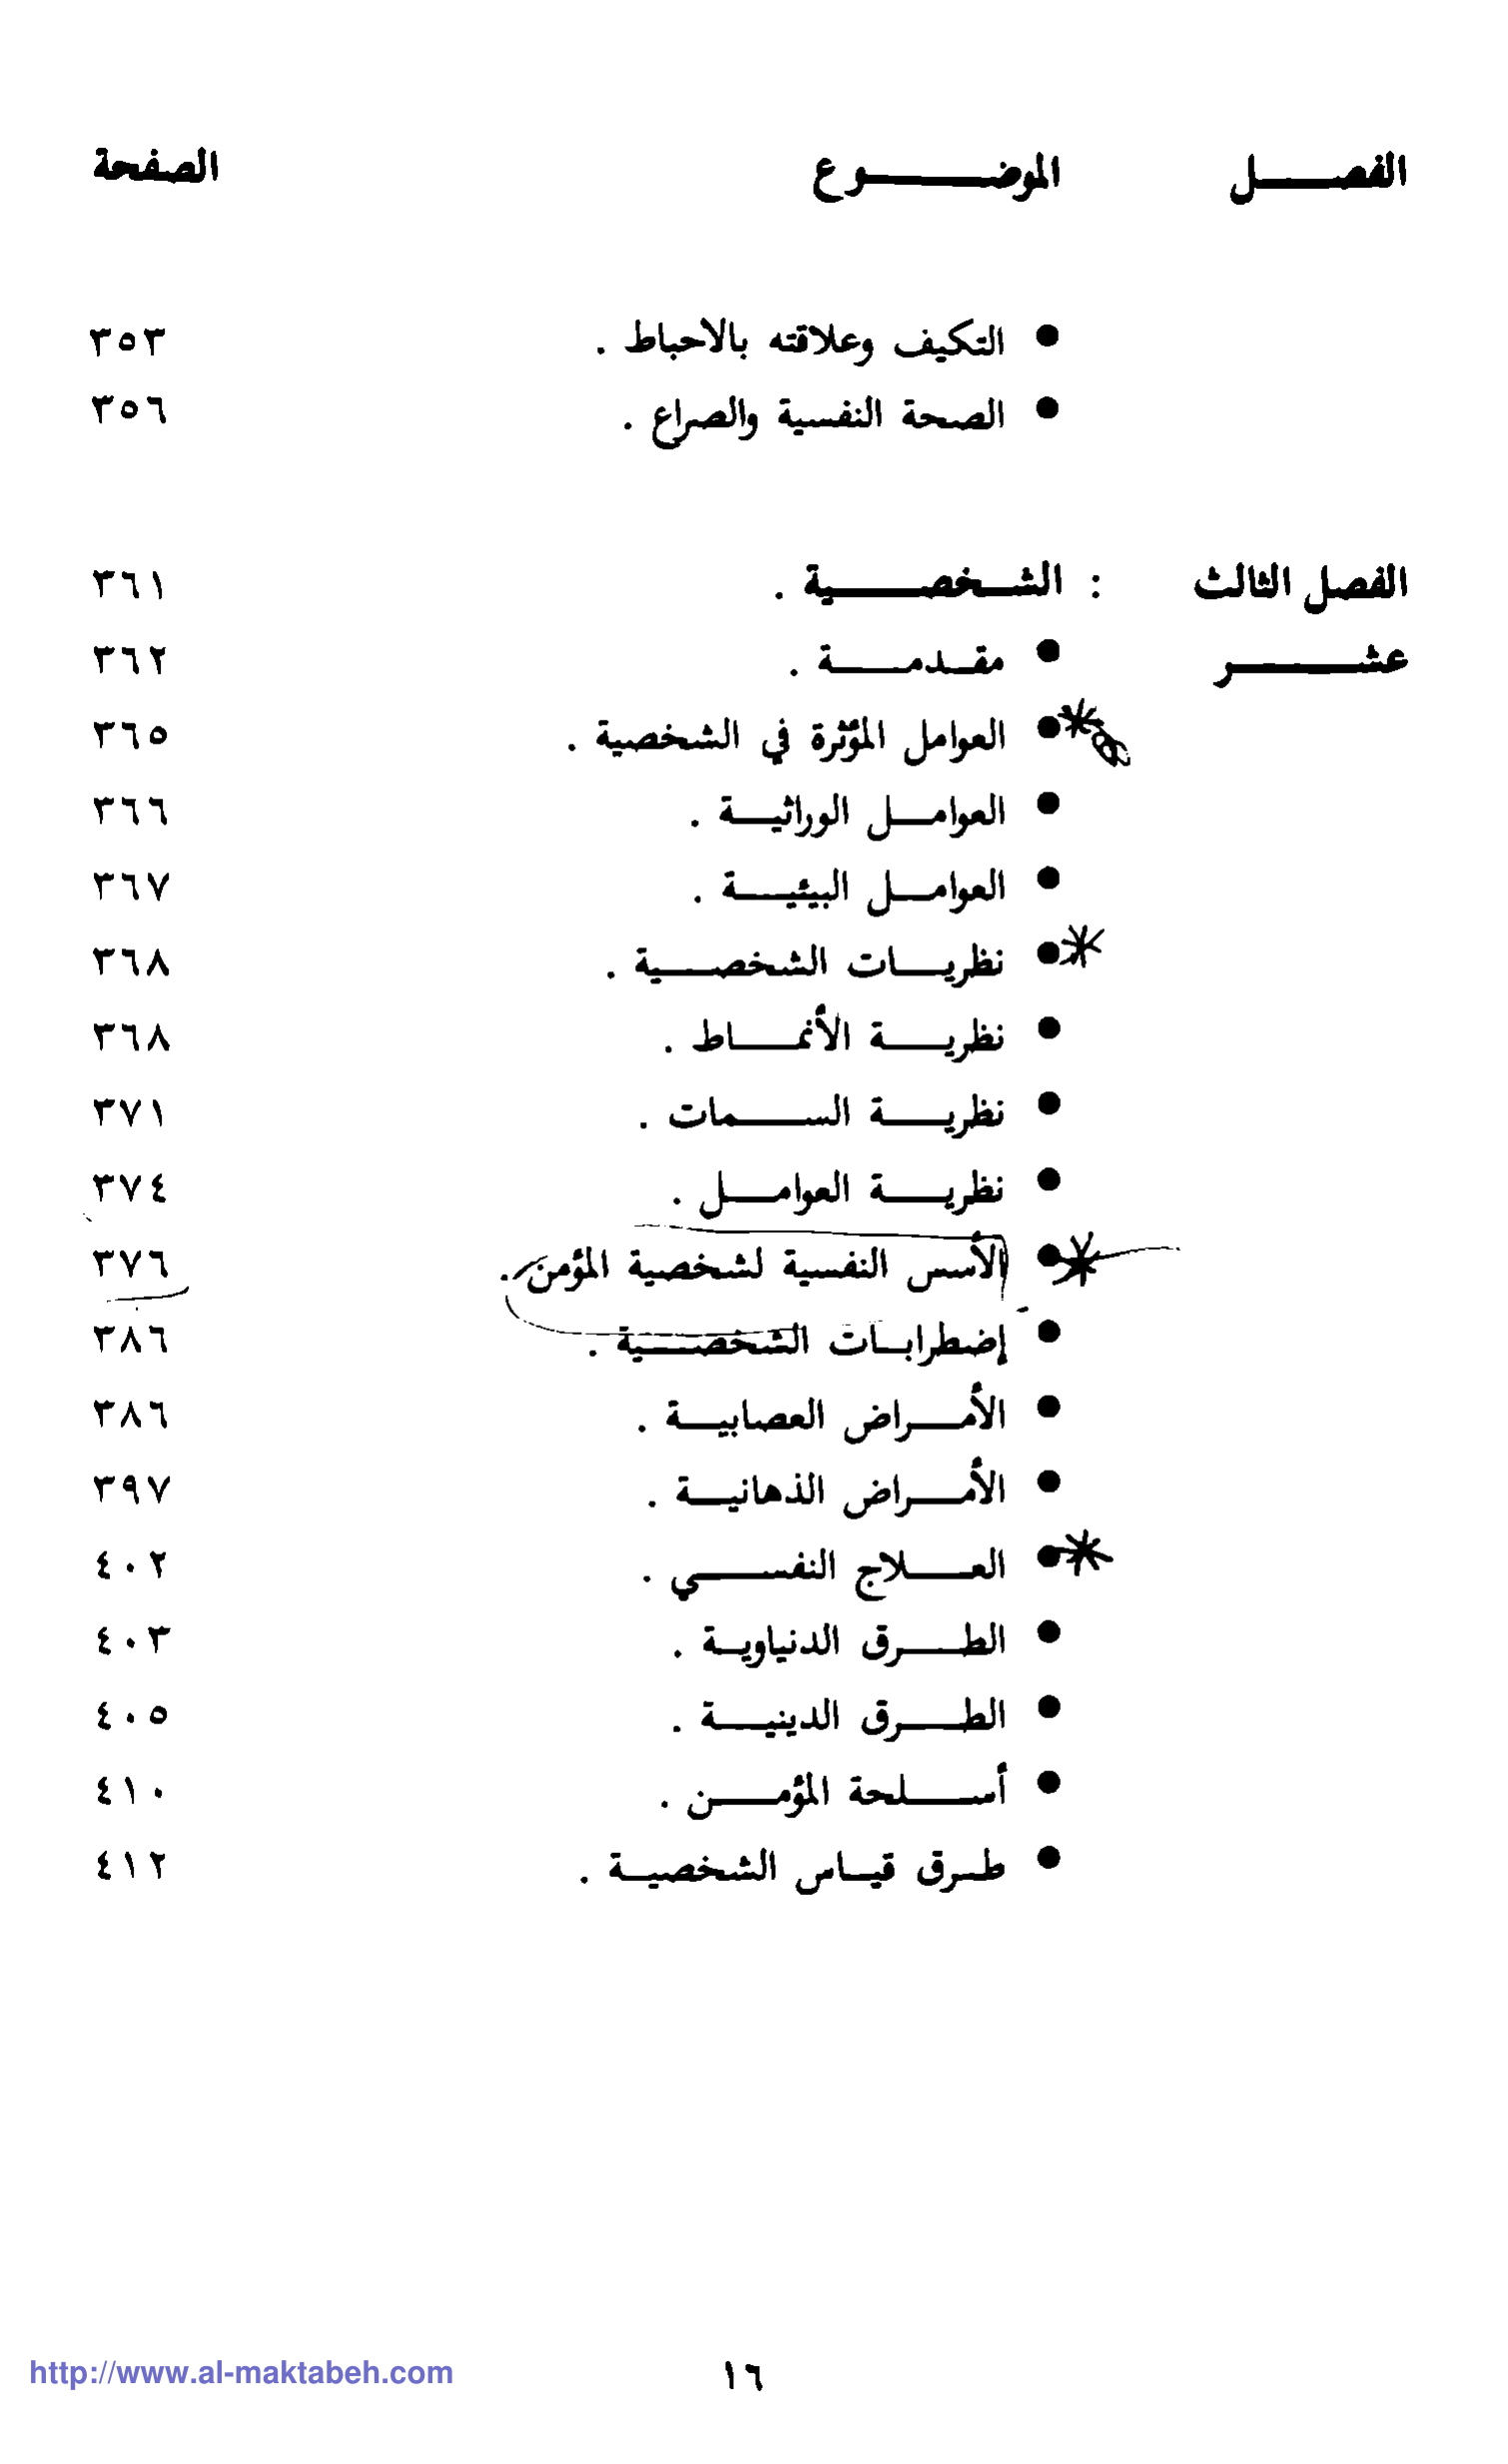 الفصل الموضوع الصفحة
● التكيف وعلاقته بالاحباط . ٣٥٣
● الصحة النفسية والصراع . ٣٥٦
الفصل الثالث : الشخصية . ٣٦١
عشر ● مقدمة . ٣٦٢
● العوامل المؤثرة في الشخصية . ٣٦٥
● العوامل الوراثية . ٣٦٦
● العوامل البيئية . ٣٦٧
● نظريات الشخصية . ٣٦٨
● نظرية الأنماط . ٣٦٨
● نظرية السمات . ٣٧١
● نظرية العوامل . ٣٧٤
● الأسس النفسية لشخصية المؤمن . ٣٧٦
● إضطرابات الشخصية . ٣٨٦
● الأمراض العصابية . ٣٨٦
● الأمراض الذهانية . ٣٩٧
● العلاج النفسي . ٤٠٢
● الطرق الدنياوية . ٤٠٣
● الطرق الدينية . ٤٠٥
● أسلحة المؤمن . ٤١٠
● طرق قياس الشخصية . ٤١٢
١٦
http://www.al-maktabeh.com